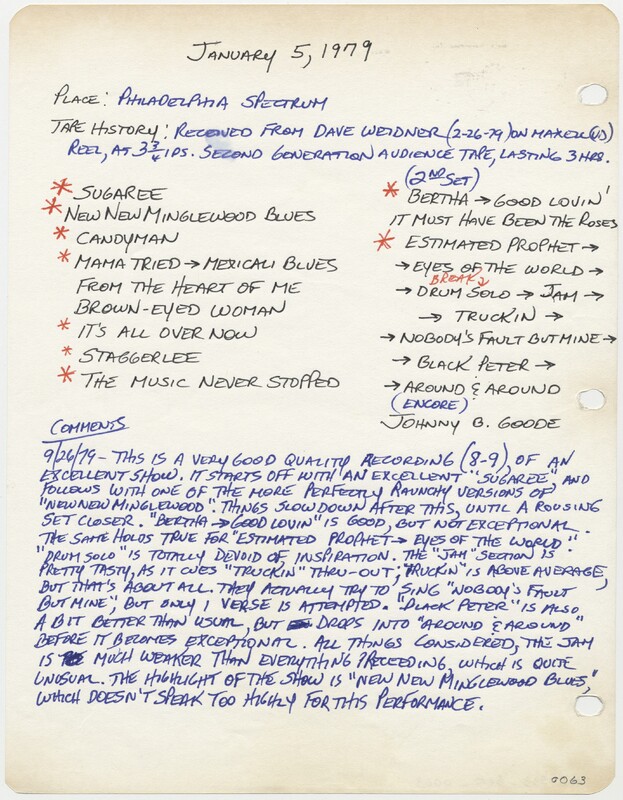 January 5, 1979
Place: Philadelphia Spectrum
Tape History: Received from Dave Weidner (2-26-79) on Maxell (UD)
Reel, at 3 3/4 ips. Second generation audience tape, lasting 3 hrs.
* Sugaree
* New New Minglewood Blues
* Candyman
* Mama Tried → Mexicali Blues
From the Heart of Me
Brown-Eyed Woman
* It's All Over Now
* Staggerlee
* The Music Never Stopped
(2nd Set)
* Bertha → Good Lovin'
It Must Have Been the Roses
* Estimated Prophet →
→ Eyes of the World →
Break 2
→ Drum Solo → Jam →
→ Truckin →
→ Nobody's Fault But Mine →
→ Black Peter →
→ Around & Around
(Encore)
Johnny B. Goode
Comments
9/26/79 - This is a very good quality recording (8-9), of an
excellent show. It starts off with an excellent "Sugaree", and
follows with one of the more perfectly raunchy versions of
"New New Minglewood". Things slow down after this, until a rousing
set closer. "Bertha → Good Lovin" is good, but not exceptional.
The same holds true for "Estimated Prophet → Eyes of the World".
"Drum Solo" is totally devoid of, inspiration. The "Jam" section is
pretty tasty, as it cues "Truckin" thru-out; "Truckin" is above average,
but that's about all. They actually try to sing "Nobody's Fault
But Mine", but only 1 verse is attempted. "Black Peter" is also
a bit better than usual, but drops into "Around & Around"
before it becomes exceptional. All things considered, the jam
is much weaker than everything preceeding, which is quite
unusual. The highlight of the show is "New New Minglewood Blues,"
which doesn't speak too highly for this performance.
0063